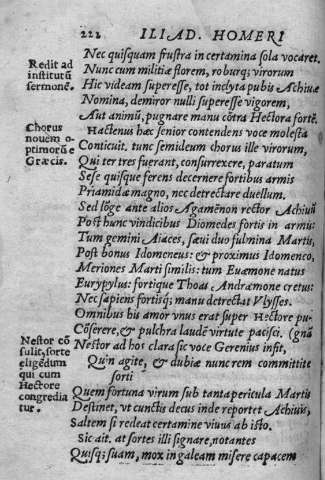 222 ILIAD. HOMERI
Nec quisquam frustra in certamina sola vocaret.
Redit ad
institutū
sermonē.
Nunc cum militiæ florem, roburq; virorum
Hic videam superesse, tot inclyta pubis Achiuæ
Nomina, demiror nulli superesse vigorem,
Aut animū, pugnare manu cōtra Hectora fortē.
Chorus
nouem o-
primorū è
Græcis.
Hactenus hæc senior contendens voce molesta
Conticuit. tunc semideum chorus ille virorum,
Qui ter tres fuerant, consurrexere, paratum
Sese quisque ferens decernere fortibus armis
Priamidæ magno, nec detrectare duellum.
Sed lōgè ante alios Agamēnon rector Achiuū
Post hunc vindicibus Diomedes fortis in armis:
Tum gemini Aiaces, sæui duo fulmina Martis,
Post bonus Idomeneus: & proximus Idomenco,
Meriones Marti similis: tum Euæmone natus
Eurypylus: fortique Thoas Andræmone cretus:
Nec sapiens fortisq; manu detrectat Vlysses.
Omnibus his amor vnus erat super Hectore pu-
Cōserere, & pulchra laudē virtute pacisci. (gnā
Nestor cō
sulit, sorte
eligēdum
qui cum
Hectore
congredia
tur.
Nestor ad hos clara sic voce Gerenius infit,
Quin agite, & dubiæ nunc rem committite
sorti
Quem fortuna virum sub tanta pericula Martis
Destinet, vt cunctis decus inde reportet Achiuis,
Saltem si redeat certamine viuus ab isto.
Sic ait. at sortes illi signare, notantes
Quisq; suam, mox in galeam misere capacem